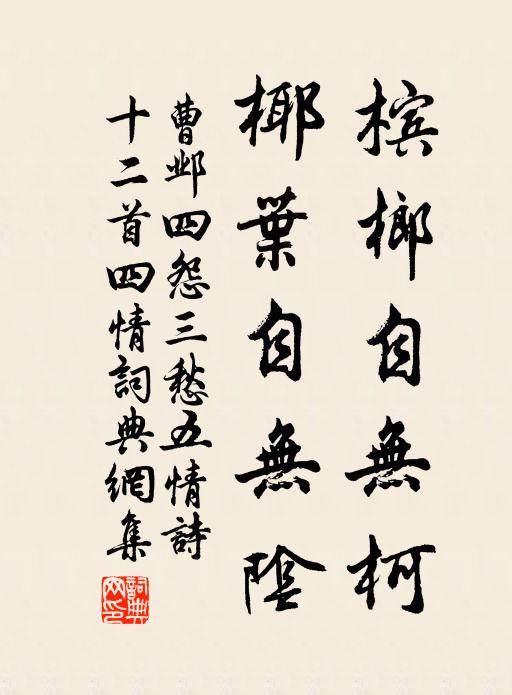 檳榔自無柯
椰葉自無陰
曹邺四怨三愁五情詩
十二首四情詞典網集
詞典網印